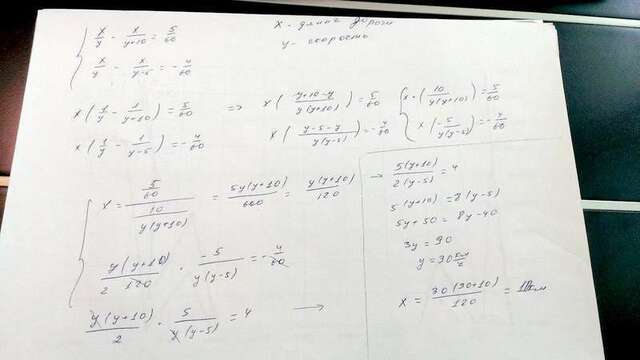 x/y - x/(y+10) = 5/60
x/y - x/(y-5) = -4/60
x - длина дороги
y - скорость
x(1/y - 1/(y+10)) = 5/60 => x((y+10-y)/(y(y+10))) = 5/60
x(1/y - 1/(y-5)) = -4/60
x((y-5-y)/(y(y-5))) = -4/60
x·(10/(y(y+10))) = 5/60
x(-5/(y(y-5))) = -4/60
x = (5/60)/(10/(y(y+10))) = 5y(y+10)/600 = y(y+10)/120
y(y+10)/(2 120) · -5/(y(y-5)) = -4/60
y(y+10)/2 · 5/(y(y-5)) = 4 →
→ 5(y+10)/(2(y-5)) = 4
5(y+10) = 8(y-5)
5y+50 = 8y-40
3y = 90
y = 30 км/ч
x = 30(30+10)/120 = 10км